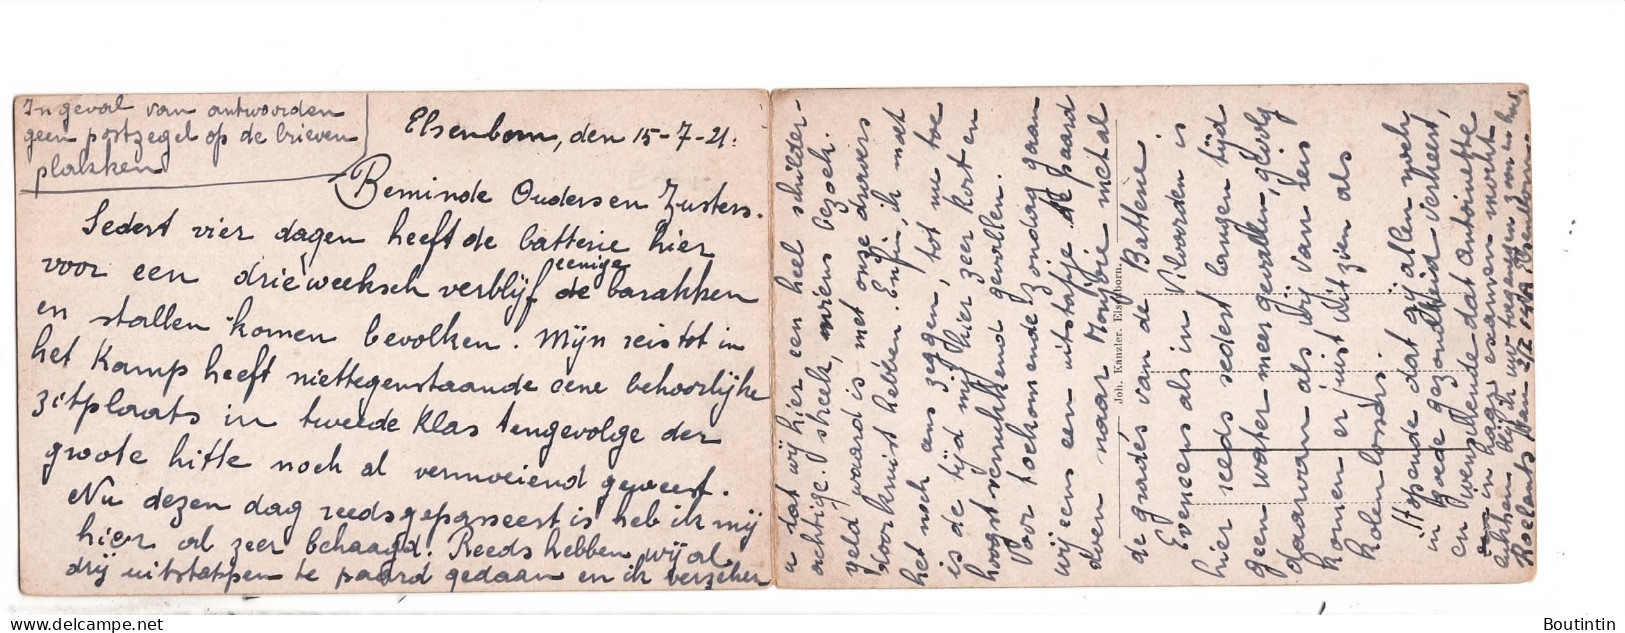 In geval van antwoorden
geen postzegel op de brieven
plakken
Elsenborn, den 15-7-21.
Beminde Ouders en Zusters.
Sedert vier dagen heeft de batterie hier
voor een drieweeksch verblijf de eenige barakken
en stallen komen bevolken. Mijn reis tot in
het Kamp heeft niettegenstaande eene behoorlijke
zitplaats in tweede klas tengevolge der
groote hitte noch al vermoeiend geweest.
Nu dezen dag reeds gepasseerd is heb ik mij
hier al zeer behaagd. Reeds hebben wij al
drij uitstappen te paard gedaan en ik verzeker
u dat wij hier een heel schilder-
achtige streek, wiens bezoek
geld waard is met onze dravers
doorkruist hebben. Enfin, ik moet
het noch eens zeggen, tot nu toe
is de tijd mij hier zeer kort en
hoogst verrukkend gevallen.
Voor toekomende zondag gaan
wij eens een uitstapje te paard
doen naar Monjoie met al
de gradés van de Batterie.
Joh. Kanzler. Elsenborn.
Eveneens als in Vilvoorden is
hier reeds sedert langen tijd
geen water meer gevallen, gevolg
daarvan als wij van reis
komen er juist uitzien als
kolenlossers.
Hopende dat gij allen noch
in goede gezondheid verkeert,
en wenschende dat Antoinette
in haar examen mocht
lukken blijf ik uw toegenegen zoon en broer
Roelants